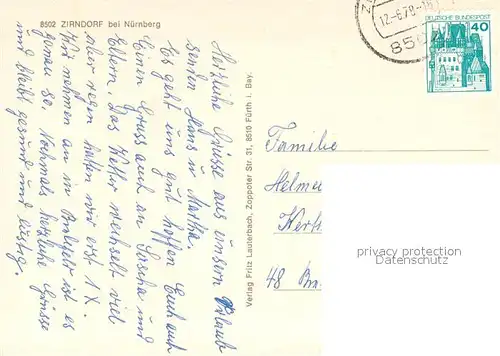 8502 ZIRNDORF bei Nürnberg
Herzliche Grüsse aus unserm Urlaub
senden Hans u. Martha.
Es geht uns gut hoffen Euch auch
Einen Gruss auch an Sascha und
Eltern. Das Wetter wechselt viel
aber regen hatten wir erst 1 X.
Wir nehmen an in Brilett ist es
genau so. Nochmals herzliche Grüsse
und bleibt gesund und lustig.
Verlag Fritz Lauterbach, Zoppoter Str. 31, 8510 Fürth i. Bay.
12.-6.78-16
850
DEUTSCHE BUNDESPOST
40
Familie
Helmu
48
privacy protection
Datenschutz